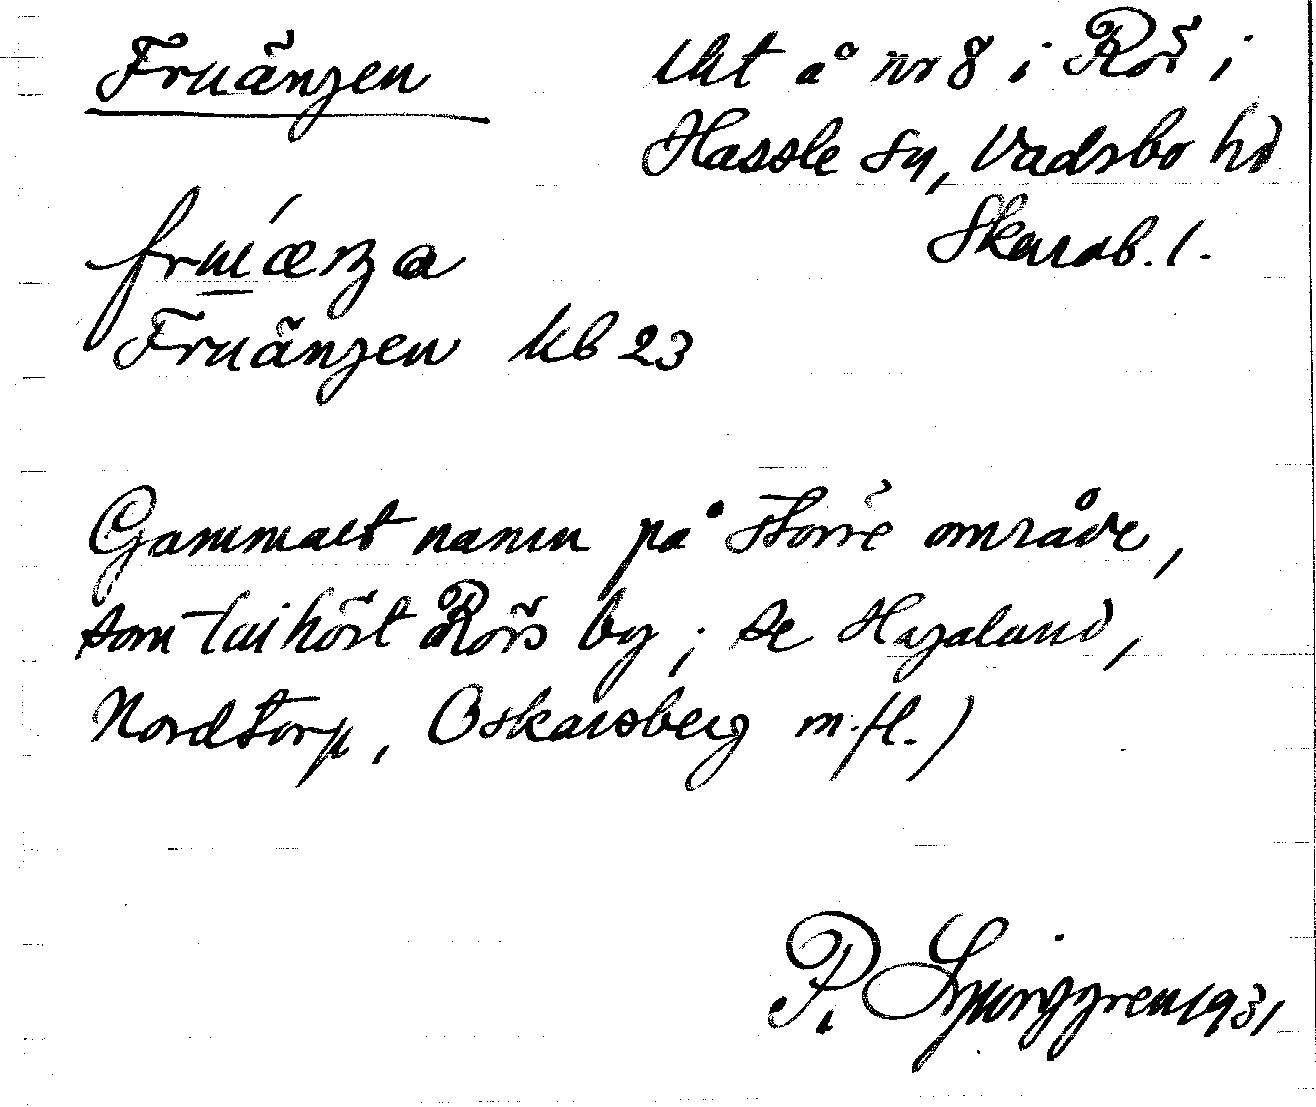 Fruängen
Tkt å nr 8 i Rör i
Hassle sn, Vadsbo hd
Skarab. l.
Fruängen kb 23
Gammalt namn på större område,
som tillhört Rörs by; se Hagalund,
Nordtorp, Oskarsberg m.fl.)
P. Ljunggren 1931